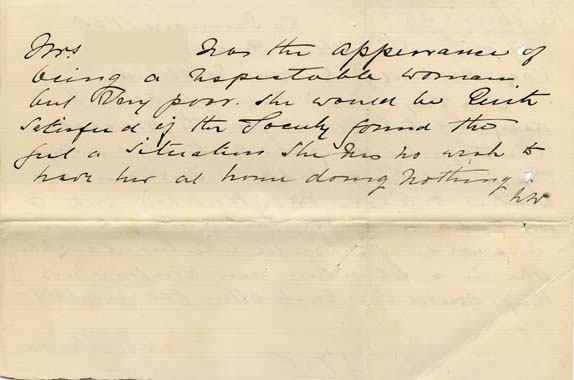 Mrs. has the appearance of
being a respectable woman
but very poor. She would be Quite
Satisfied if the Society found the
girl a Situation She has no wish to
have her at home doing nothing